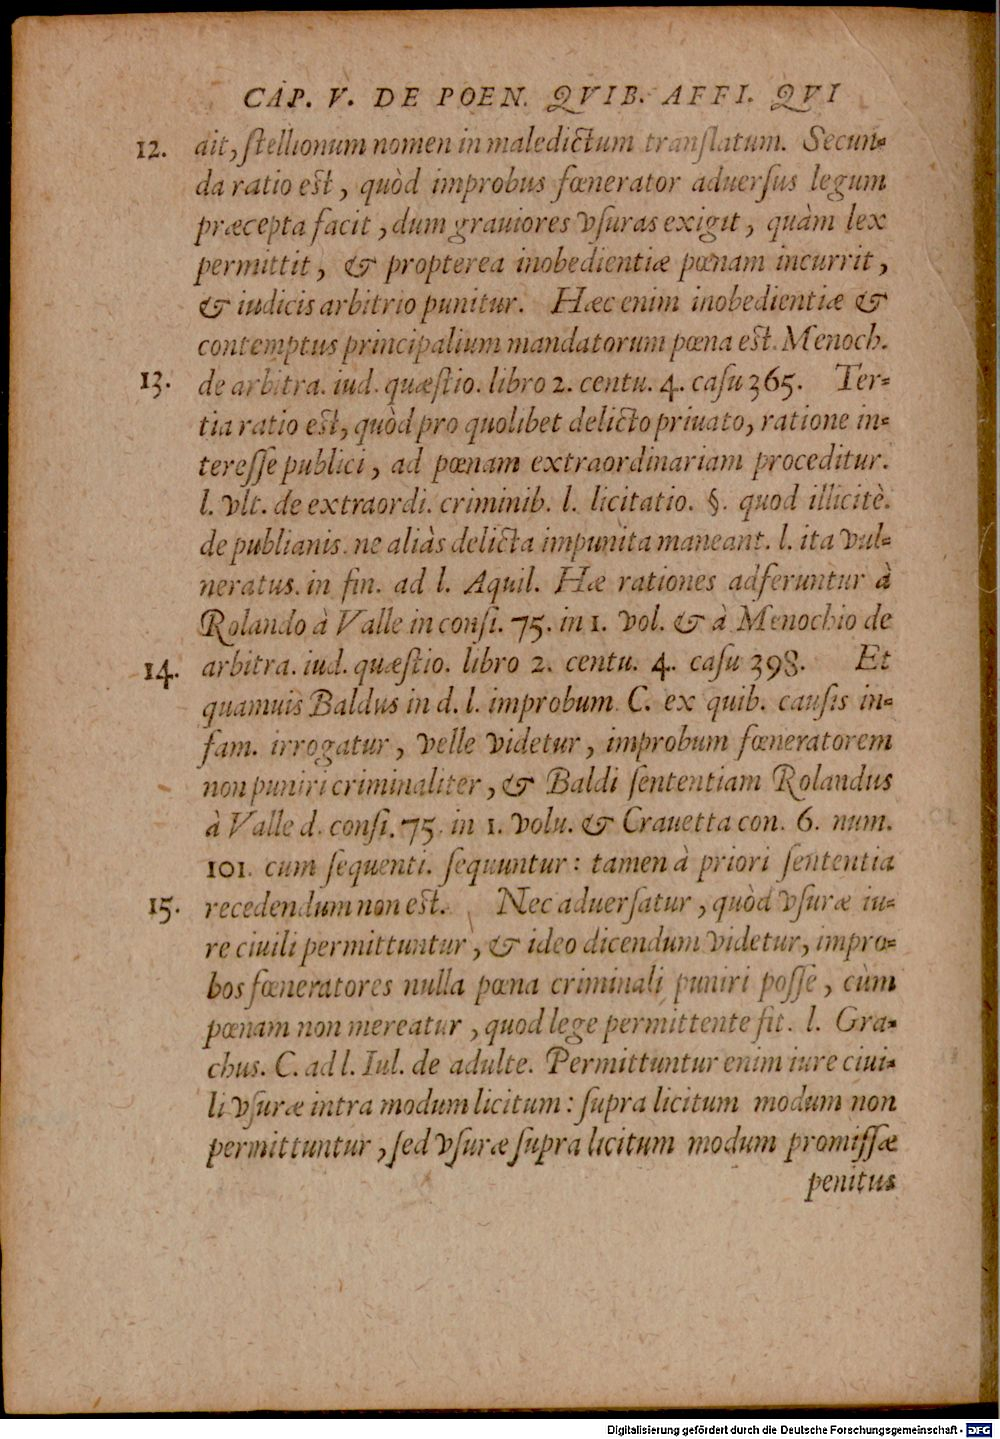 CAP. V. DE POEN. QVIB. AFFI. QVI
12. ait, ſtellionum nomen in maledictum tranſlatum. Secun-
da ratio est, quòd improbus fœnerator aduerſus legum
præcepta facit, dum grauiores vſuras exigit, quàm lex
permittit, & propterea inobedientiæ pœnam incurrit,
& iudicis arbitrio punitur. Hæc enim inobedientiæ &
contemptus principalium mandatorum pœna est. Menoch.
13. de arbitra. iud. quæſtio. libro 2. centu. 4. caſu 365. Ter-
tia ratio est, quòd pro quolibet delicto priuato, ratione in-
tereſſe publici, ad pœnam extraordinariam proceditur.
l. vlt. de extraordi. criminib. l. licitatio. §. quod illicitè.
de publianis. ne aliàs delicta impunita maneant. l. ita vul-
neratus. in fin. ad l. Aquil. Hæ rationes adferuntur à
Rolando à Valle in conſi. 75. in 1. vol. & à Menochio de
14. arbitra. iud. quæſtio. libro 2. centu. 4. caſu 398. Et
quamuis Baldus in d. l. improbum. C. ex quib. cauſis in-
fam. irrogatur, velle videtur, improbum fœneratorem
non puniri criminaliter, & Baldi ſententiam Rolandus
à Valle d. conſi. 75. in 1. volu. & Crauetta con. 6. num.
101. cum ſequenti. ſequuntur: tamen à priori ſententia
15. recedendum non est. Nec aduerſatur, quòd vſuræ iu-
re ciuili permittuntur, & ideo dicendum videtur, impro-
bos fœneratores nulla pœna criminali puniri poſſe, cùm
pœnam non mereatur, quod lege permittente fit. l. Gra-
chus. C. ad l. Iul. de adulte. Permittuntur enim iure ciui-
li vſuræ intra modum licitum: ſupra licitum modum non
permittuntur, ſed vſuræ ſupra licitum modum promiſſæ
penitus
Digitalisierung gefördert durch die Deutsche Forschungsgemeinschaft - DFG